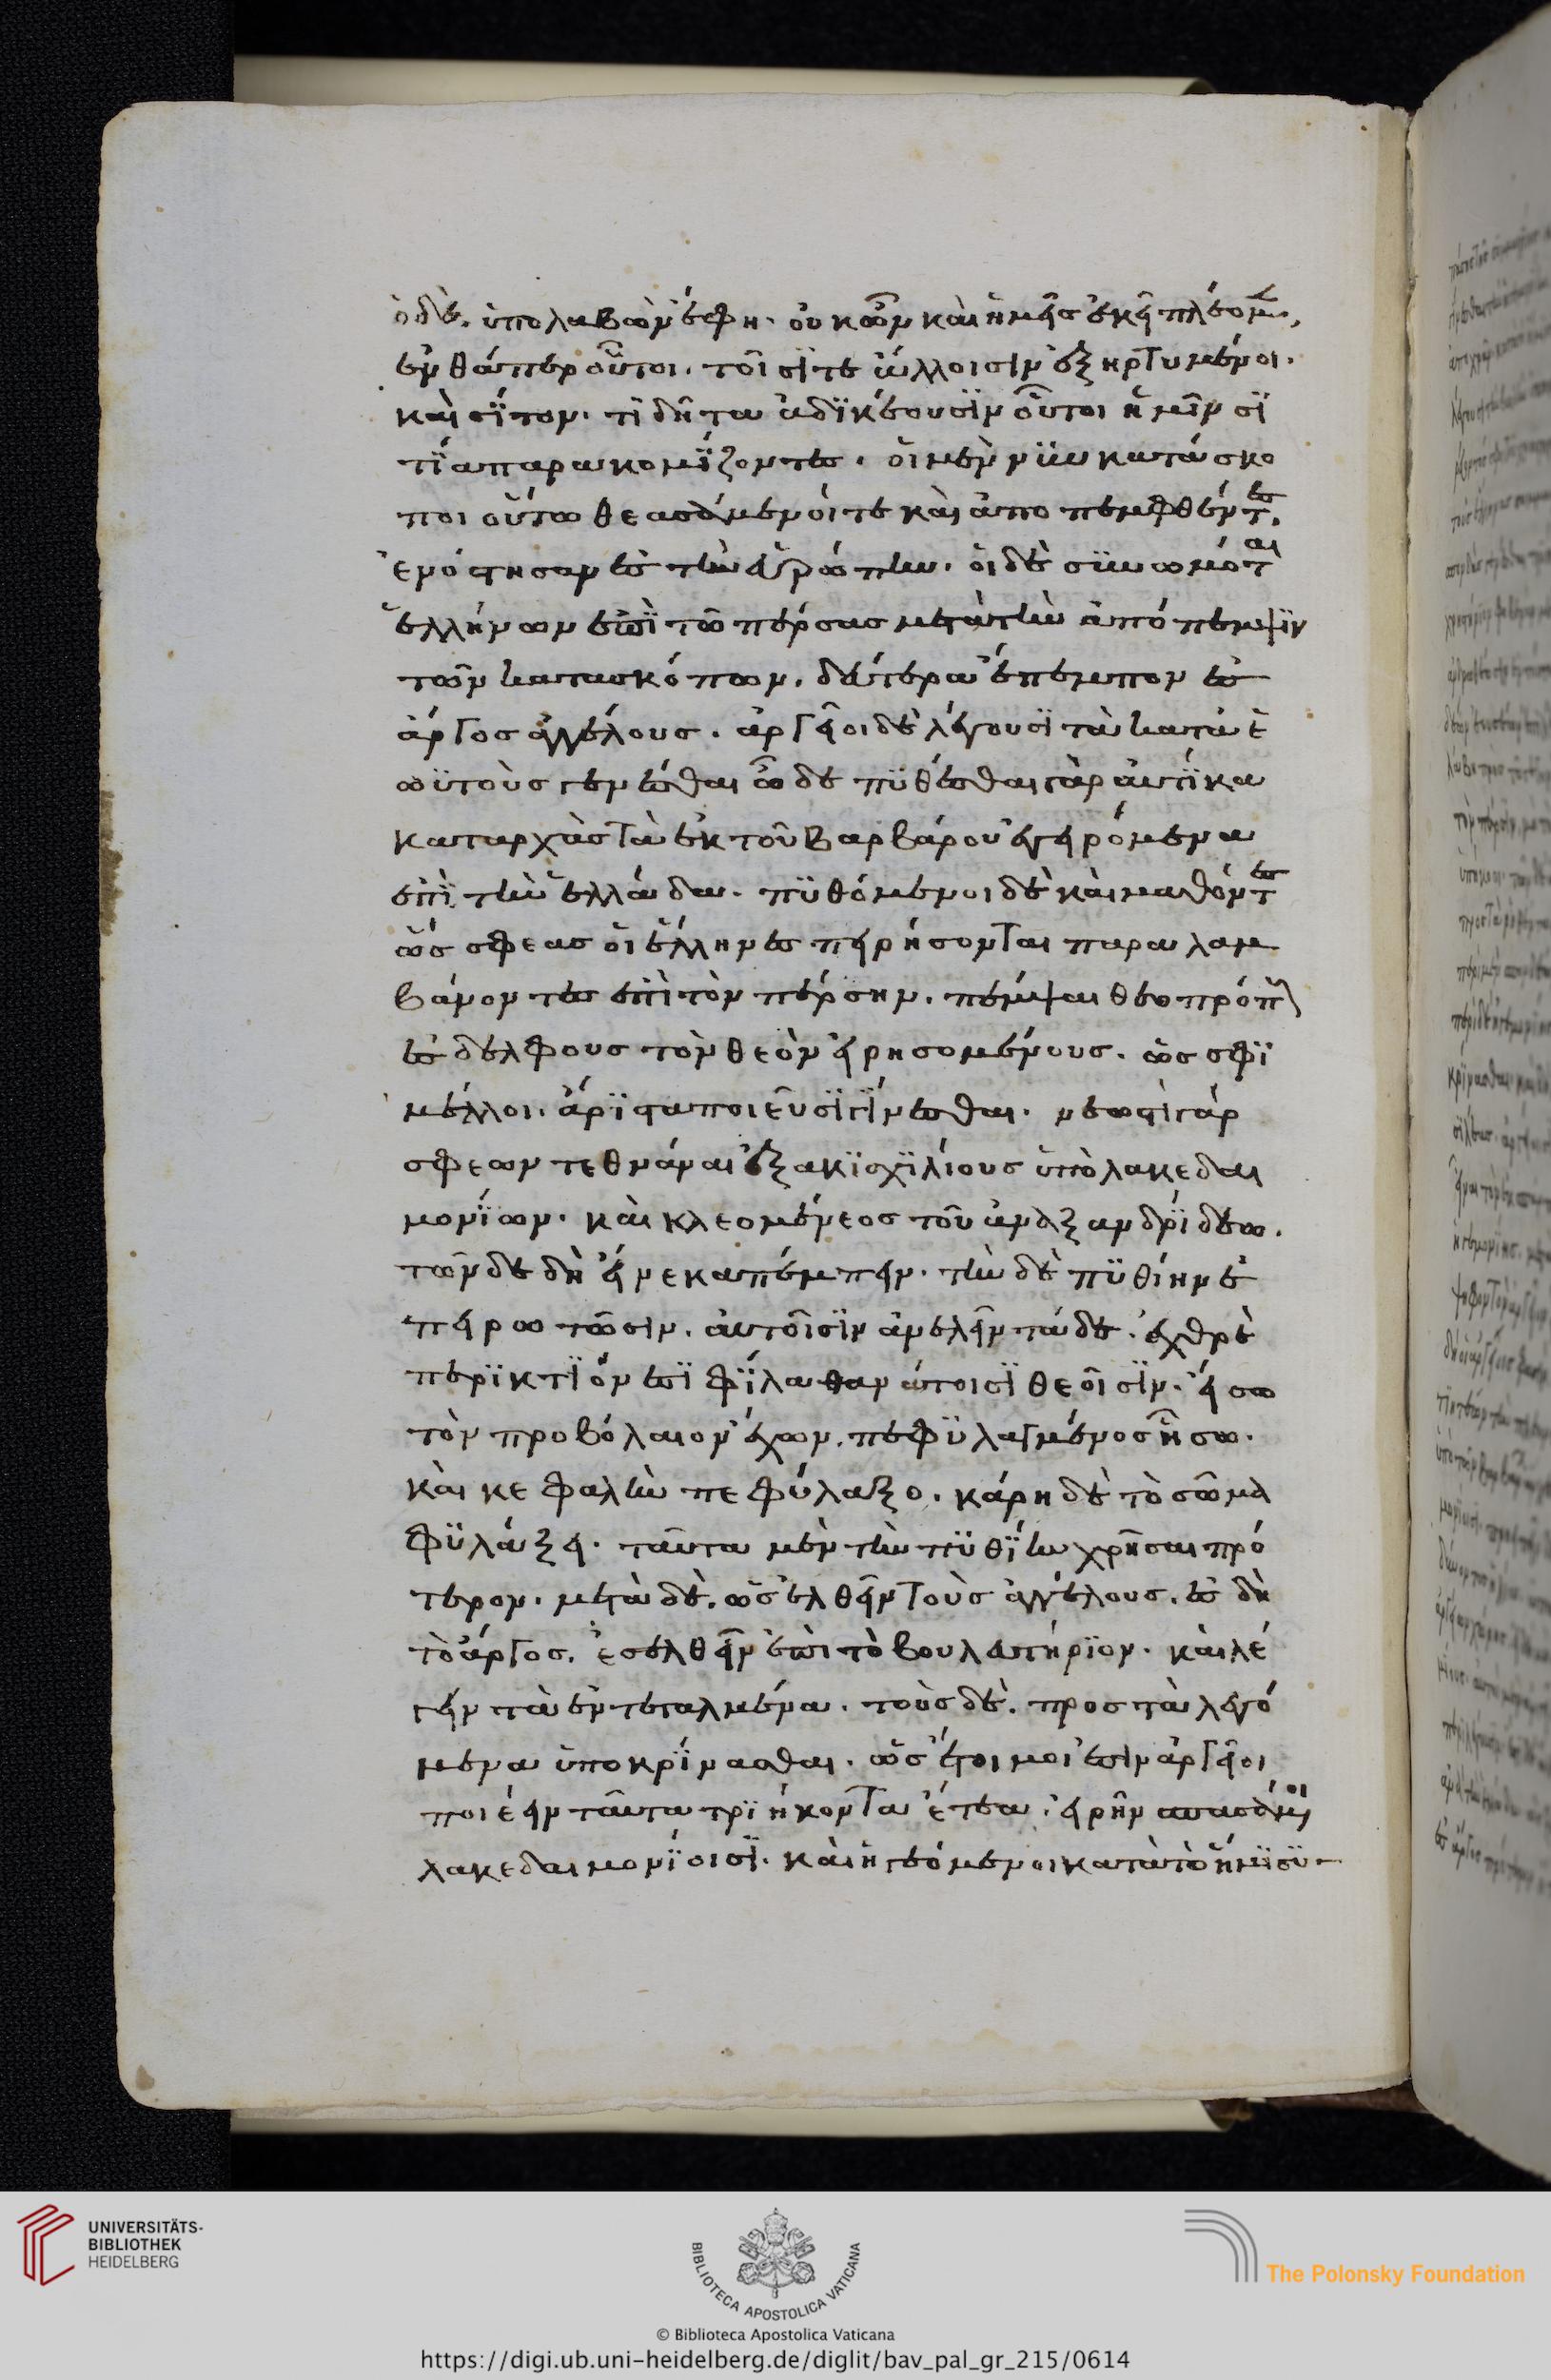 ὁ δὲ, ὑπολαβὼν ἔφη· οὐκῶν καὶ ἡμεῖς ἐκεῖ πλέομεν,
ἔνθάπερ οὗτοι. τοῖσί τε ἄλλοισιν ἐξηρτυμένοι.
καὶ σίτον. τί δῆτα ἀδικέουσιν οὗτοι ἡμῖν σϊ
τία παρακομίζοντες. οἱ μέν νϋν κατάσκο
ποι οὕτω θεασάμενοί τε καὶ ἀποπεμφθέντες.
ἐνόστησαν ἐς τὴν ἐυρώπην. οἱ δὲ συνωμόται
ἑλλήνων ἐπὶ τῶ πέρσας μετὰ τὴν ἀπόπεμψιν
τῶν κατασκόπων, δεύτερα ἔπεμπον ἐς
ἄργος ἀγγέλους. ἀργεῖοι δὲ λέγουσι τὰ κατὰ ἑ
ωϋτοὺς γενέσθαι ὧδε πϋθέσθαι γὰρ ἀυτίκα
καταρχὰς τὰ ἐκ τοῦ βαρβάρου ἐγειρόμενα
ἐπὶ τὴν ἑλλάδα. πϋθόμενοι δὲ καὶ μαθόντες
ὥς σφεας οἱ ἕλληνες πειρήσονται παραλαμ
βάνοντες ἐπὶ τὸν πέρσην. πέμψαι θεοπρόπους
ἐς δελφοὺς τὸν θεὸν εἰρησομένους. ὥς σφι
μέλλοι. ἄριστα ποιεῦσι γίνεσθαι. νεωστὶ γάρ
σφεων τεθνάναι ἑξακισχιλίους ὑπὸ λακεδαι
μονίων. καὶ κλεομένεος τοῦ ἀναξανδρίδεω.
τῶνδε δὴ εἵνεκα πέμπειν. τὴν δὲ πυθίην ἐ
πειρωτῶσιν. ἀυτοῖσιν ἀνελεῖν τάδε. ἐχθρὲ
περικτιόνεσι φίλ' ἀθανάτοισι θεοῖσιν. εἴσω
τὸν προβόλαιον ἔχων. πεφυλαγμένος ἧσω.
καὶ κεφαλὴν πεφύλαξο. κάρη δὲ τὸ σῶμα
φυλάξει. ταῦτα μὲν τὴν πυθίην χρῆσαι πρό
τερον. μετὰ δὲ. ὡς ἐλθεῖν τοὺς ἀγγέλους. ἐς δὴ
τὸ ἄργος. ἐσελθεῖν ἐπὶ τὸ βουλευτήριον. καὶ λέ
γειν τὰ ἐντεταλμένα. τοὺς δὲ. προς τὰ λεγό
μενα ὑποκρίνασθαι. ὡς ἕτοιμοι ἐσὶν ἀργεῖοι
ποιέειν ταῦτα τριήκοντα ἔτεα. εἰρήν σπεισάμενοι
λακεδαιμονίοισι. καὶ ἡγεόμενοι κατὰ τὸ ἥμισυ
UNIVERSITÄTS-
BIBLIOTHEK
HEIDELBERG
BIBLIOTECA APOSTOLICA VATICANA
© Biblioteca Apostolica Vaticana
The Polonsky Foundation
https://digi.ub.uni-heidelberg.de/diglit/bav_pal_gr_215/0614